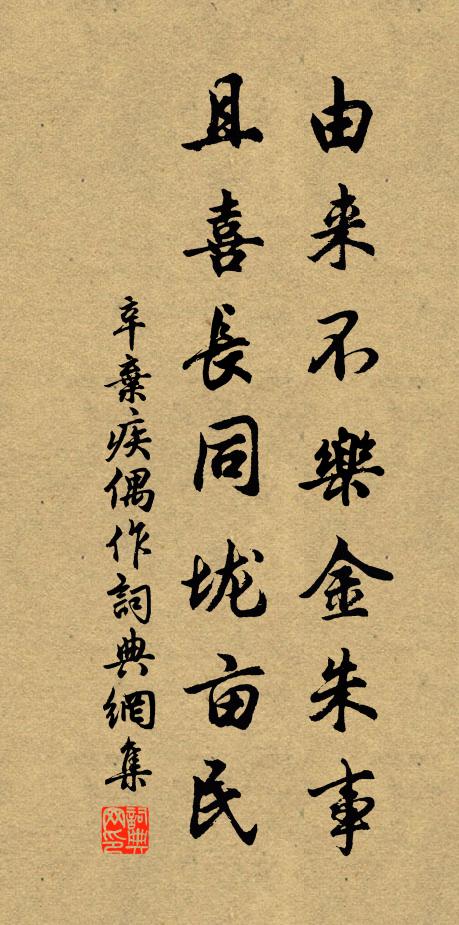 由来不樂金朱事
且喜長同垅亩民
辛棄疾偶作詞典網集
詞典
网印